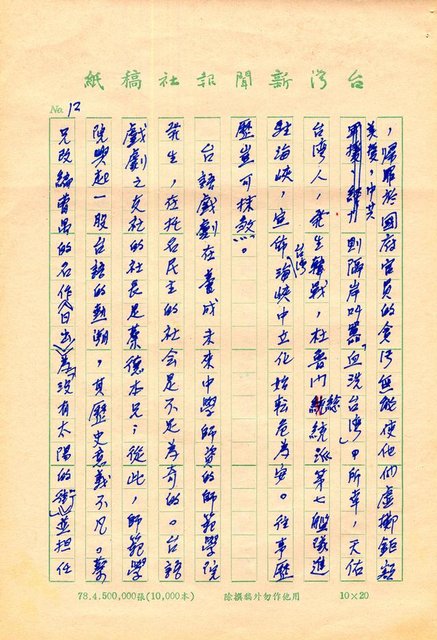 台灣新聞報社稿紙
No. 12
，歸罪於國府官員的貪污無能使他們虛擲鉅額
美援，中共則隔岸叫囂「血洗台灣」。所幸，天佑
台灣人，發生韓戰，杜魯門總統派第七艦隊進
駐海峽，宣佈台灣海峽中立化始轉危為安。往事歷
歷豈可抹煞"。
台語戲劇在養成未來中學師資的師範學院
發生，在托名民主的社會是不足為奇的。台語
戲劇之友社的社長是蔡德本兄；從此，師範學
院興起一股台語的熱潮，其歷史意義不凡。蔡
兄改編曹禺的名作《日出》為《沒有太陽的街》並担任
78.4.500,000張(10,000本)
除撰稿外勿作他用
10×20